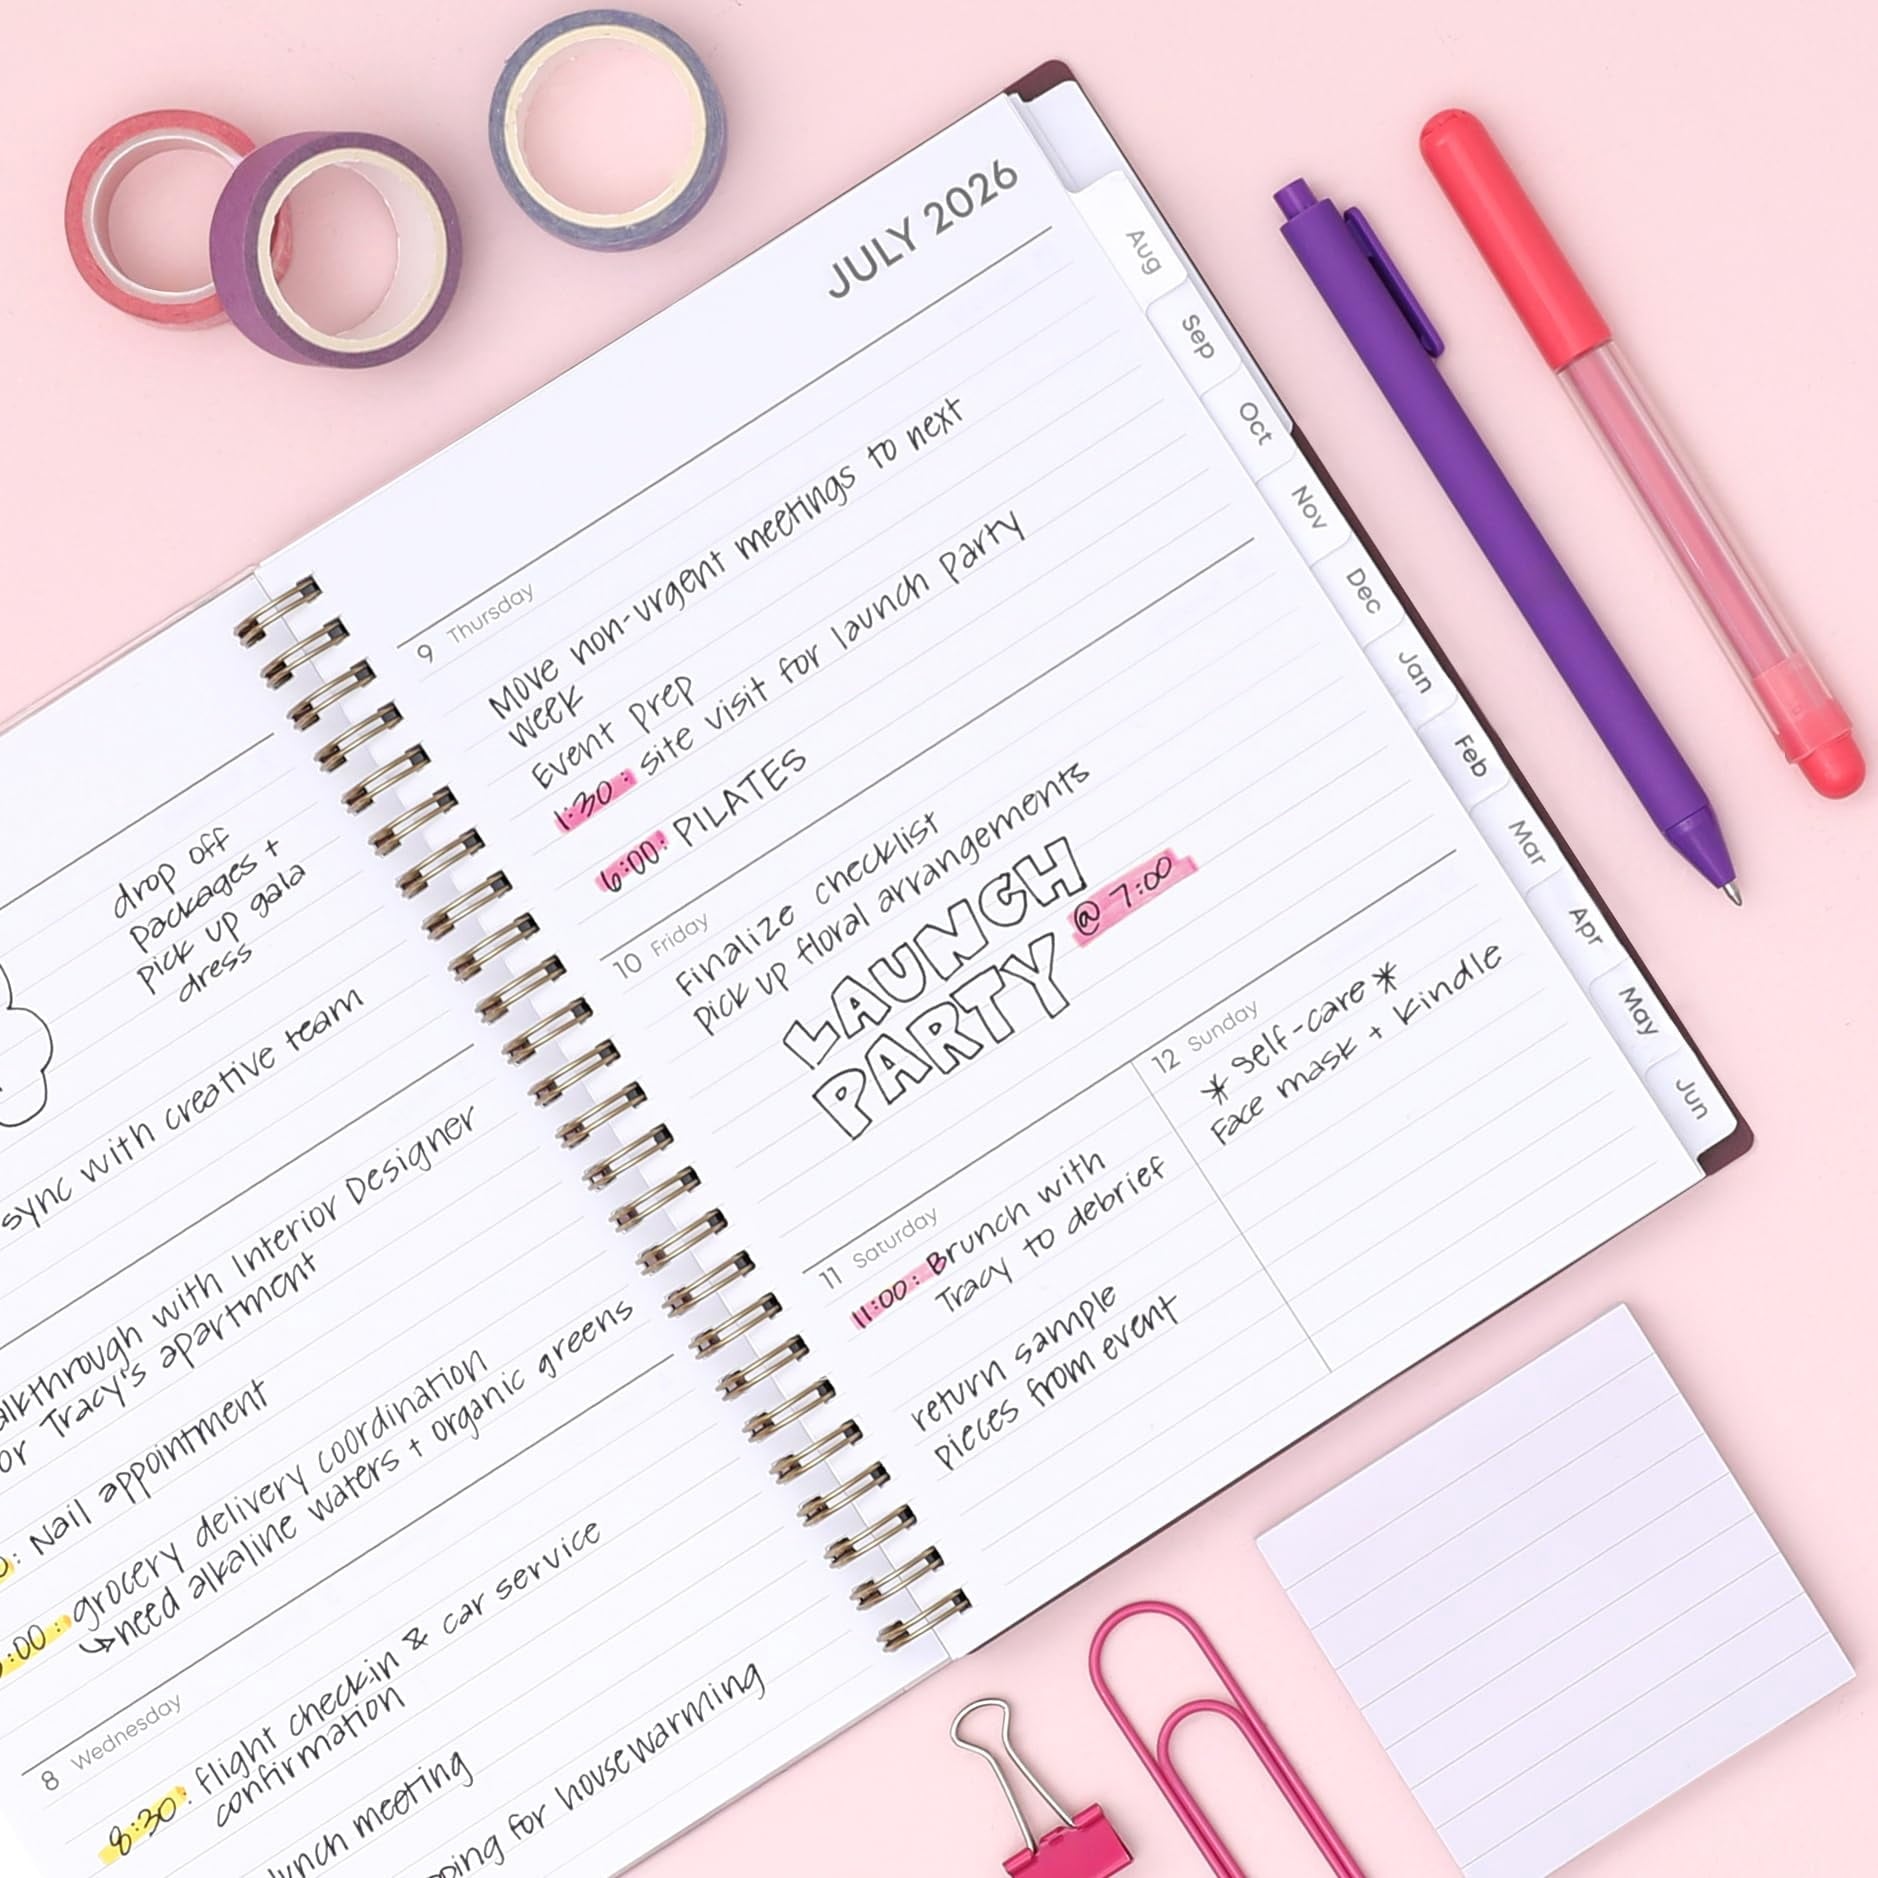 drop off
packages +
pick up gala
dress
sync with creative team
with Interior Designer
Tracy's apartment
: Nail appointment
:00: grocery delivery coordination
↳need alkaline waters + organic greens
8 Wednesday
8:30: flight check-in & car service
confirmation
meeting
for housewarming
JULY 2026
9 Thursday
Move non-urgent meetings to next
week
Event prep
1:30: site visit for launch party
6:00: PILATES
10 Friday
Finalize checklist
pick up floral arrangements
LAUNCH
PARTY @ 7:00
11 Saturday
11:00: Brunch with
Tracy to debrief
return sample
pieces from event
12 Sunday
* self-care *
Face mask + Kindle
Aug
Sep
Oct
Nov
Dec
Jan
Feb
Mar
Apr
May
Jun